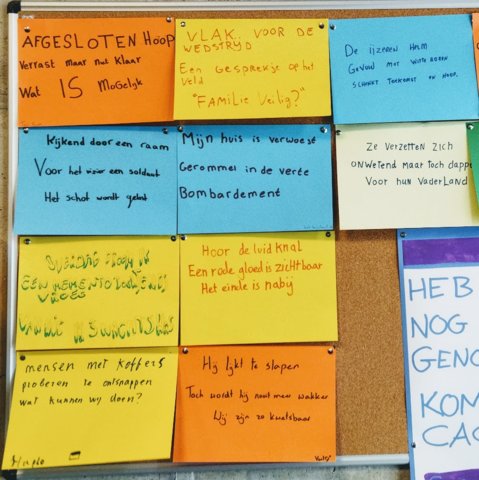 AFGESLOTEN HOOP
Verrast maar nut klaar
Wat IS MoGelyk
VLAK VOOR DE
WEDSTRYD
Een GESPREKJE OP HET
VELD
"FAMILIE VEILIG?"
De ijzeren Helm
Gevuld met witte rozen
SCHENKT TOEKOMST EN HOOP.
Kijkend door een raam
Voor het vizier een soldaat
Het schot wordt gelost
Mijn huis is verwoest
Gerommel in de verte
Bombardement
Ze verzetten zich
ONWETEND MAAR TOCH DAPPER
Voor hun VaderLand
Hoor de luid knal
Een rode gloed is zichtbaar
Het einde is nabij
mensen met koffers
proberen te ontsnappen
wat kunnen wij doen?
Hij lijkt te slapen
Toch wordt hij nooit meer wakker
Wij zijn zo kwetsbaar
HEB
NOG
GENO
KOM
CA